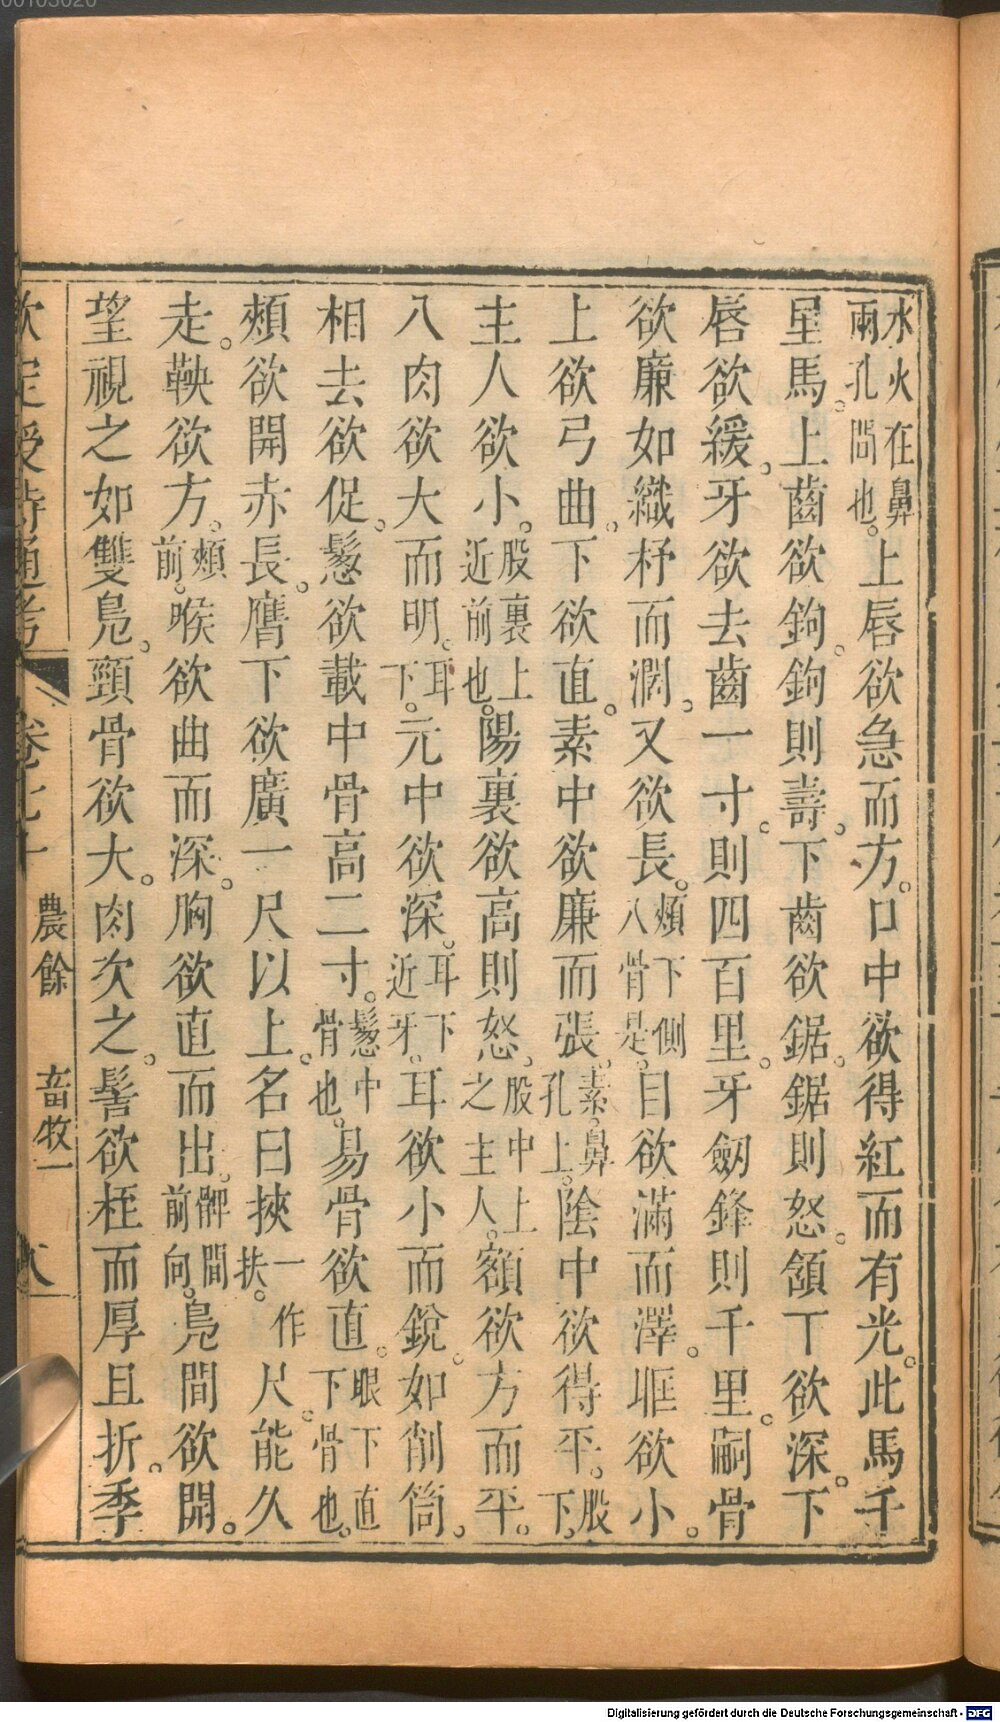 水火在鼻兩孔間也。上唇欲急而方。口中欲得紅而有光。此馬千
里馬。上齒欲鉤。鉤則壽。下齒欲鋸。鋸則怒。頷下欲深。下
唇欲緩。牙欲去齒一寸。則四百里。牙劒鋒。則千里。嗣骨
欲廉如織杼而濶。又欲長。頰下側八骨是。目欲滿而澤。眶欲小。
上欲弓曲。下欲直。素中欲廉而張。素。鼻孔上。陰中欲得平。股下。
主人欲小。股裏上近前也。陽裏欲高則怒。股中上之主人。額欲方而平。
八肉欲大而明。耳下。元中欲深。耳下近牙。耳欲小而銳。如削筒。
相去欲促。鬉欲載中骨高三寸。鬉中骨也。易骨欲直。眼下直下骨也。
頰欲開赤長。膺下欲廣一尺以上。名曰挾一作扶。尺。能久
走。鞅欲方。頰前。喉欲曲而深。胸欲直而出。髀間前向。鳧間欲開。
望視之如雙鳧。頸骨欲大。肉次之。髻欲桎而厚且折。季
欽定授時通考 卷七十 農餘 畜牧一 八
Digitalisierung gefördert durch die Deutsche Forschungsgemeinschaft - DFG